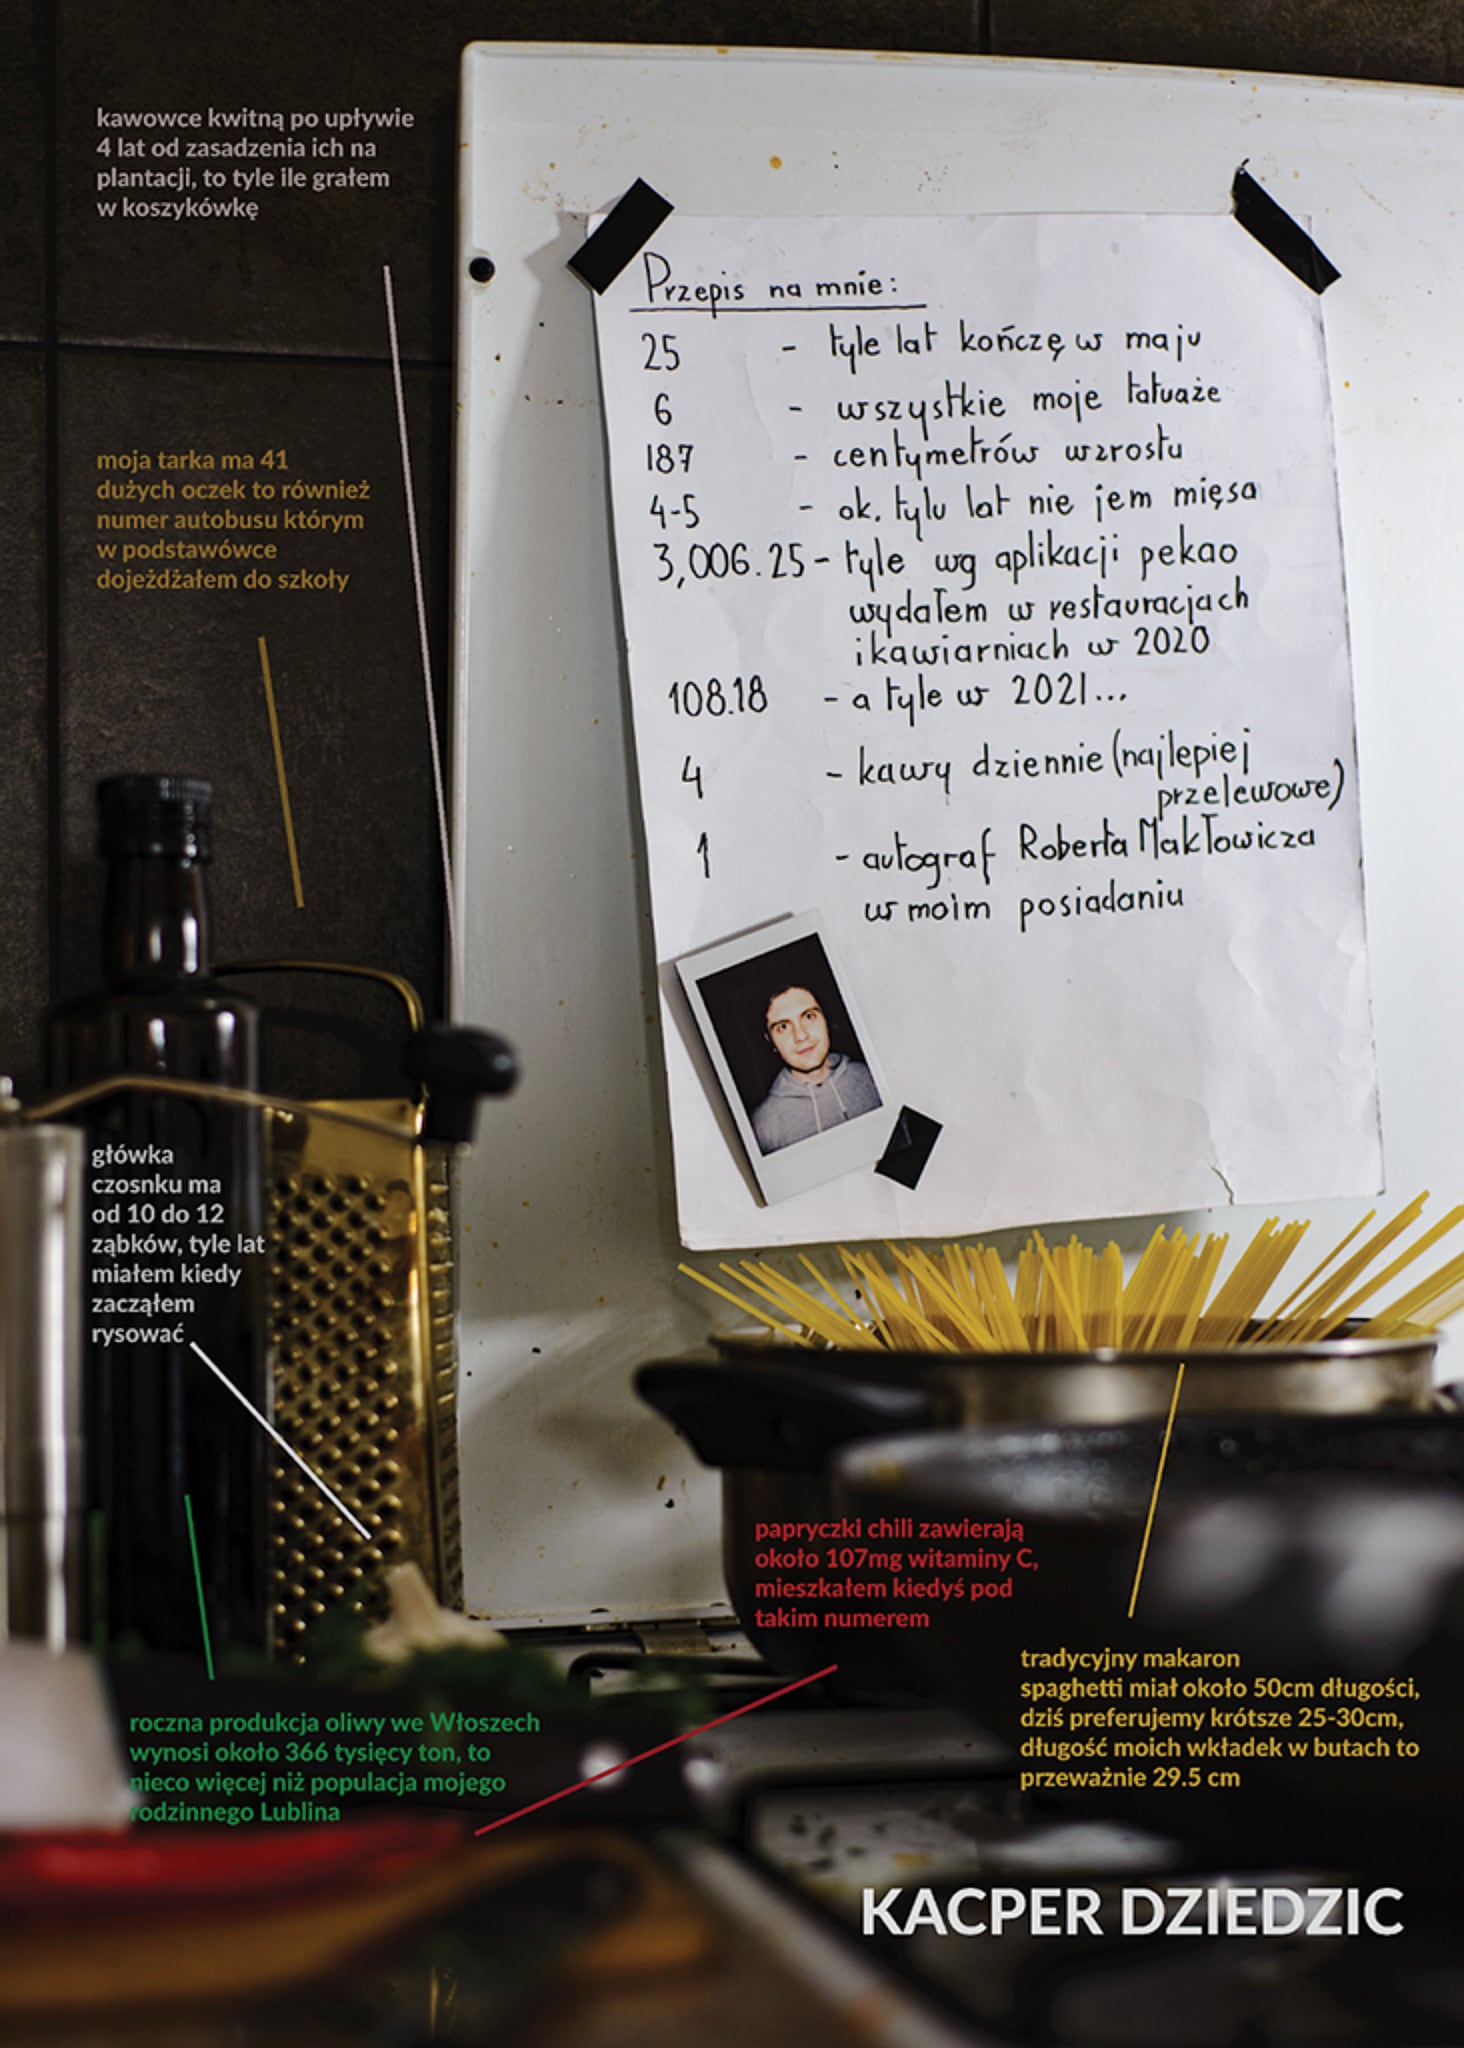 kawowce kwitną po upływie
4 lat od zasadzenia ich na
plantacji, to tyle ile grałem
w koszykówkę
moja tarka ma 41
dużych oczek to również
numer autobusu którym
w podstawówce
dojeżdżałem do szkoły
Przepis na mnie:
25 - tyle lat kończę w maju
6 - wszystkie moje tatuaże
187 - centymetrów wzrostu
4-5 - ok. tylu lat nie jem mięsa
3,006.25 - tyle wg aplikacji pekao
wydałem w restauracjach
i kawiarniach w 2020
108.18 - a tyle w 2021...
4 - kawy dziennie (najlepiej
przelewowe)
1 - autograf Roberta Makłowicza
w moim posiadaniu
główka
czosnku ma
od 10 do 12
ząbków, tyle lat
miałem kiedy
zacząłem
rysować
papryczki chili zawierają
około 107mg witaminy C,
mieszkałem kiedyś pod
takim numerem
tradycyjny makaron
spaghetti miał około 50cm długości,
dziś preferujemy krótsze 25-30cm,
długość moich wkładek w butach to
przeważnie 29.5 cm
roczna produkcja oliwy we Włoszech
wynosi około 366 tysięcy ton, to
nieco więcej niż populacja mojego
rodzinnego Lublina
KACPER DZIEDZIC